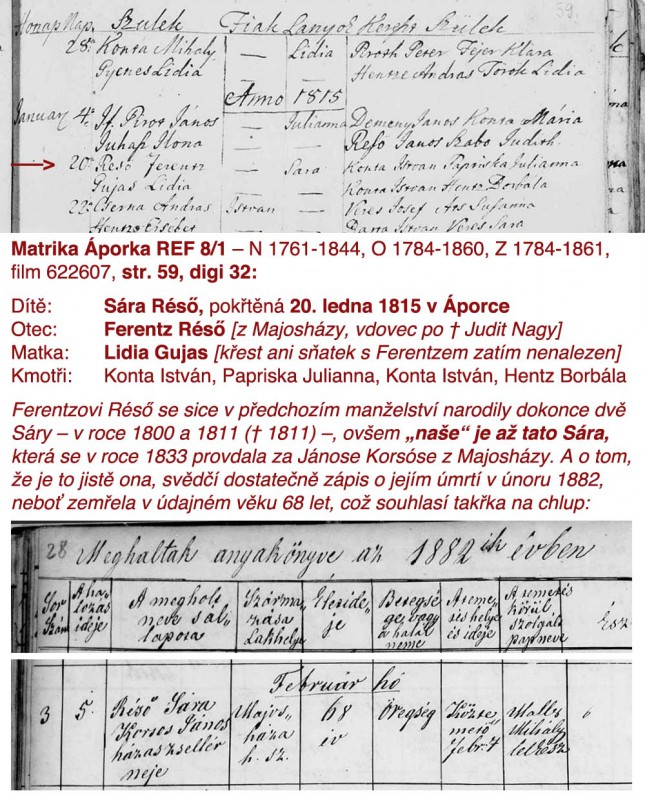 Honap Nap. Szulék Fiak Lanyok Kereszt Szülék 59.
28a Konta Mihaly — Lidia Piroth Peter Fejer Klara
Gyenes Lidia — — Hentze Andras Török Lidia
Anno 1815
January 4a If. Pirot János — Julianna Demeny Janos Konta Mária
Juhasz Ilona — — Resö Janos Szabo Judith.
20a Resö Ferentz — Sara Konta Istvan Papriska Julianna
Gujas Lidia — — Konta Istvan Hentz Borbala
22a Cserna Andras Istvan — Veres Josef Ars Susanna
Hentze Ersébet — — Istvan Veres Sara
Matrika Áporka REF 8/1 – N 1761-1844, O 1784-1860, Z 1784-1861,
film 622607, str. 59, digi 32:
Dítě: Sára Réső, pokřtěná 20. ledna 1815 v Áporce
Otec: Ferentz Réső [z Majosházy, vdovec po † Judit Nagy]
Matka: Lidia Gujas [křest ani sňatek s Ferentzem zatím nenalezen]
Kmotři: Konta István, Papriska Julianna, Konta István, Hentz Borbála
Ferentzovi Réső se sice v předchozím manželství narodily dokonce dvě
Sáry – v roce 1800 a 1811 († 1811) –, ovšem „naše“ je až tato Sára,
která se v roce 1833 provdala za Jánose Korsóse z Majosházy. A o tom,
že je to jistě ona, svědčí dostatečně zápis o jejím úmrtí v únoru 1882,
neboť zemřela v údajném věku 68 let, což souhlasí takřka na chlup:
28 Meghaltak anyakönyve az 1882ik évben
Sor Szám
A halálozás ideje
A megholt neve s állapota
Származása Lakhelye
Életideje
Betegsége, vagy a halál neme
A temetés helye és ideje
A temetés körül szolgált pap neve
Ész
Február hó
3 5. Réső Sára Majos- 68 Öregség Közte- Mally
Korsos János háza év mető Mihály
házas zsellér h. sz. febr. 7 lelkész
neje